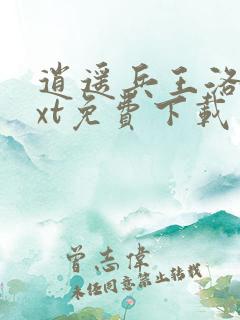 逍遥兵王洛
xt免費下載
曾志偉
未经同意禁止转载